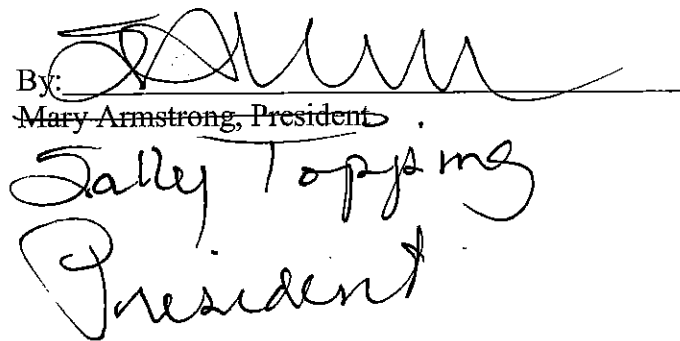 By:
Mary Armstrong, President
Sally Topping
President